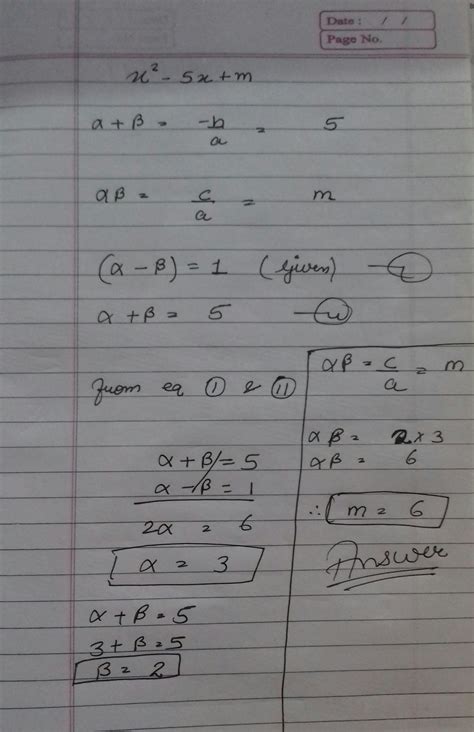 Date : / /
Page No.
x² - 5x + m
α + β = -b/a = 5
αβ = c/a = m
(α - β) = 1 (Given) — I
α + β = 5 — II
From eq I & II
α + β = 5
α - β = 1
2α = 6
α = 3
α + β = 5
3 + β = 5
β = 2
αβ = c/a = m
αβ = 2 x 3
αβ = 6
∴ m = 6
Answer